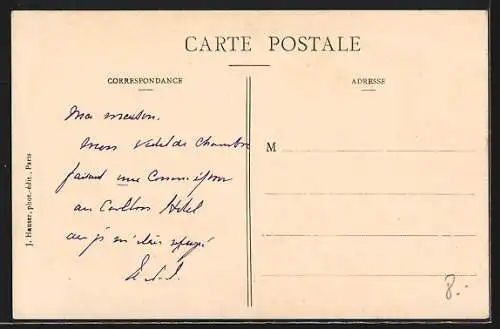 CARTE POSTALE
CORRESPONDANCE
ADRESSE
Ma maison.
mon valet de chambre
faisant une Commission
au Carlton Hotel
où je m'étais réfugié
M
J. Hauser, phot.-édit., Paris
8.-